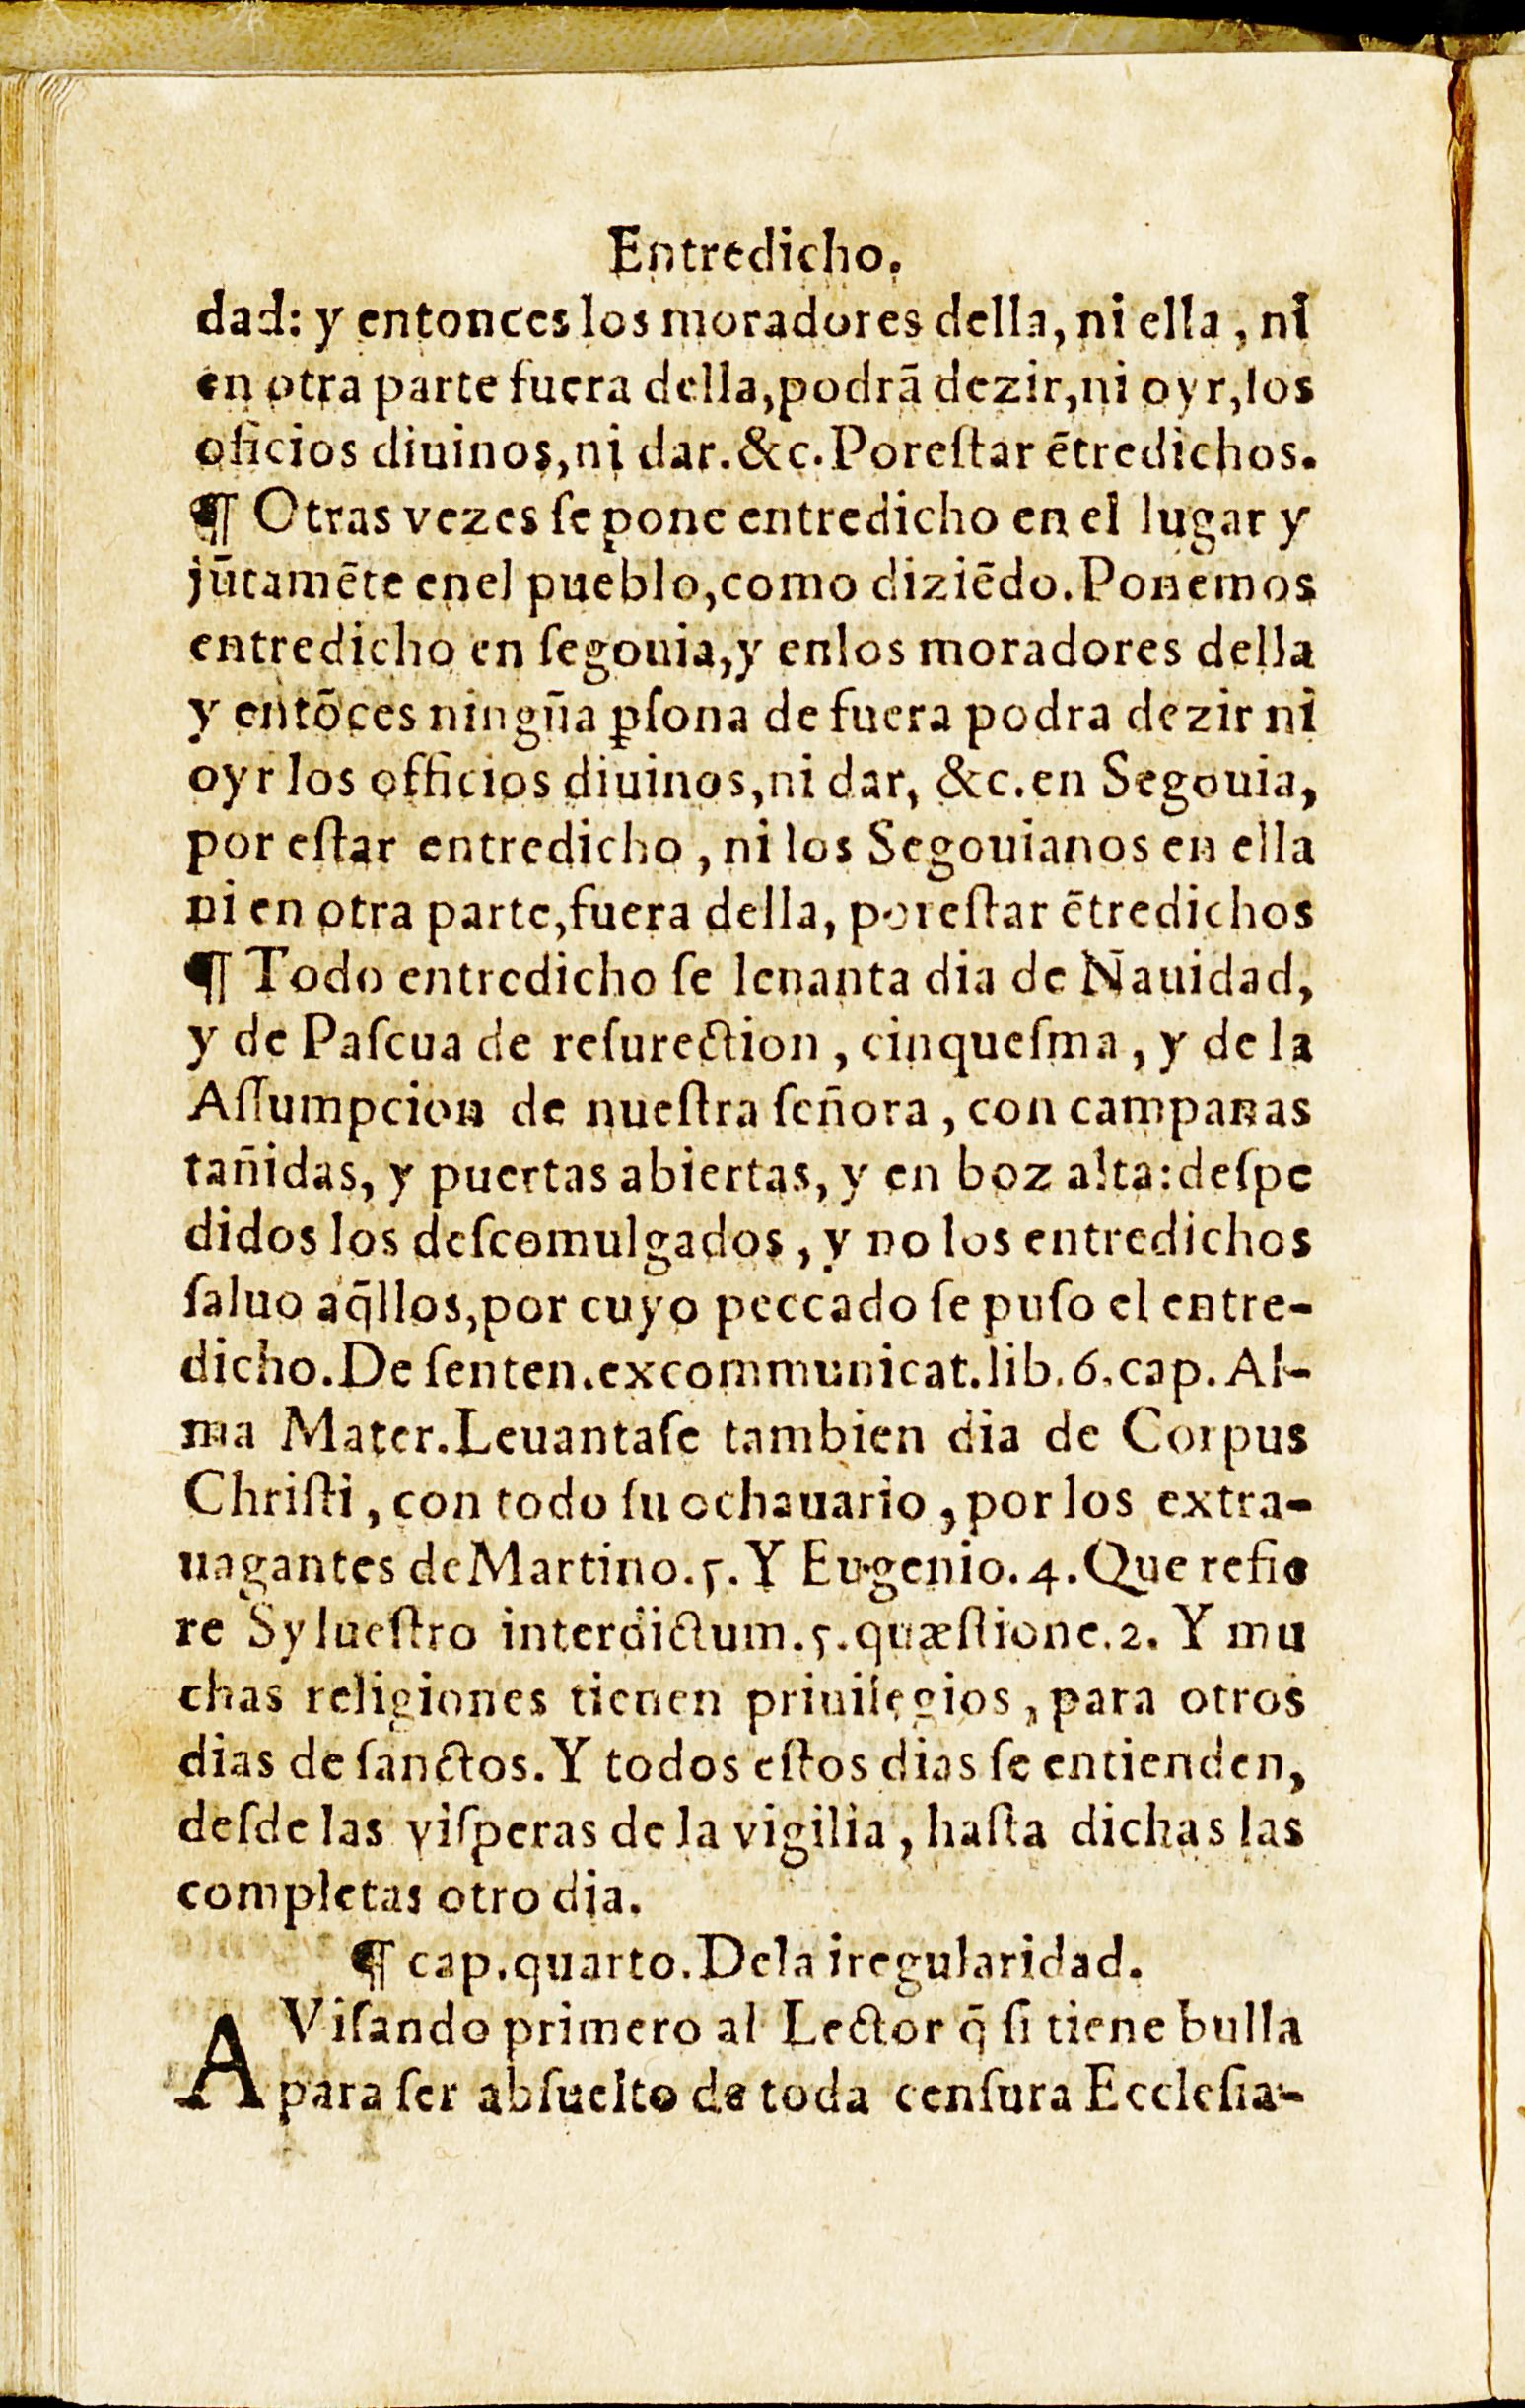 Entredicho.
dad: y entonces los moradores della, ni ella, ni
en otra parte fuera della, podrã dezir, ni oyr, los
oficios diuinos, ni dar. &c. Por eſtar ẽtredichos.
¶ Otras vezes ſe pone entredicho en el lugar y
jũtamẽte enel pueblo, como diziẽdo. Ponemos
entredicho en ſegouia, y enlos moradores della
y entõces ningũa ꝑſona de fuera podra dezir ni
oyr los officios diuinos, ni dar, &c. en Segouia,
por eſtar entredicho, ni los Segouianos en ella
ni en otra parte, fuera della, por eſtar ẽtredichos
¶ Todo entredicho ſe lenanta dia de Nauidad,
y de Paſcua de reſurection, cinqueſma, y de la
Aſſumpcion de nueſtra ſeñora, con campanas
tañidas, y puertas abiertas, y en boz alta: deſpe
didos los deſcomulgados, y no los entredichos
ſaluo aq̃llos, por cuyo peccado ſe puſo el entre-
dicho. De ſenten. excommunicat. lib. 6. cap. Al-
ma Mater. Leuantaſe tambien dia de Corpus
Chriſti, con todo ſu ochauario, por los extra-
uagantes de Martino. 5. Y Eugenio. 4. Que refie
re Sylueſtro interdictum. 5. quæſtione. 2. Y mu
chas religiones tienen priuilegios, para otros
dias de ſanctos. Y todos eſtos dias ſe entienden,
deſde las viſperas de la vigilia, haſta dichas las
completas otro dia.
¶ cap. quarto. Dela iregularidad.
AViſando primero al Lector q̃ ſi tiene bulla
para ſer abſuelto de toda cenſura Eccleſia-